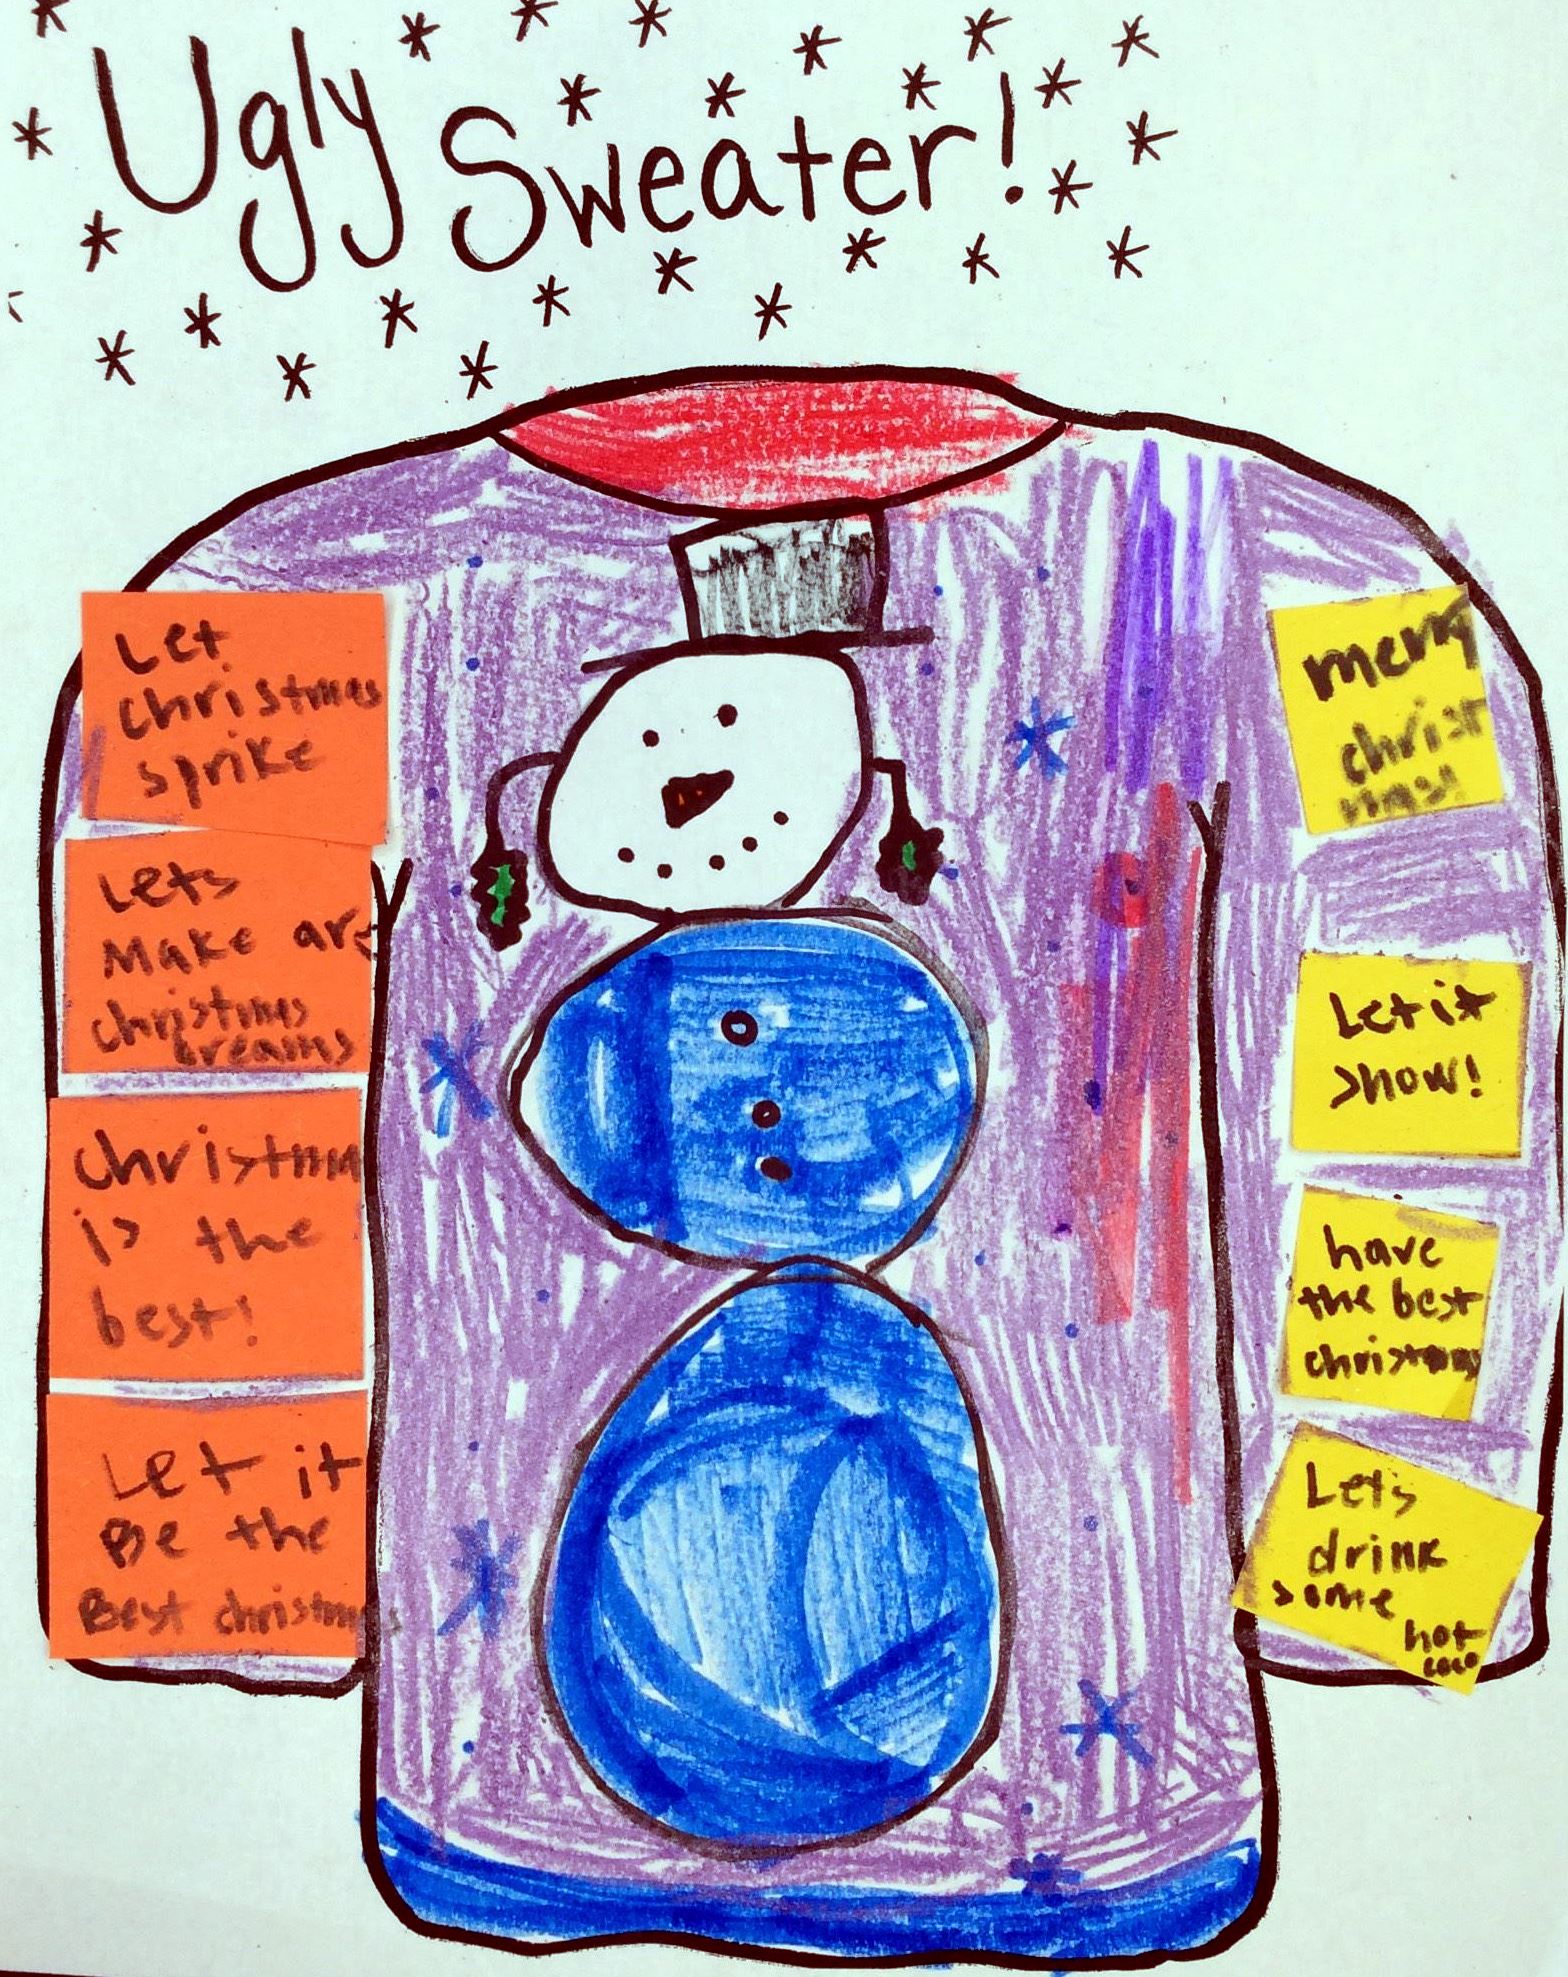 Ugly Sweater!
Let
christmas
sprike
Lets
Make are
christmas
Dreams
christmas
is the
best!
Let it
Be the
Best christmas
merry
christ
mas!
Let it
snow!
have
the best
christmas
Let's
drink
some
hot
coco